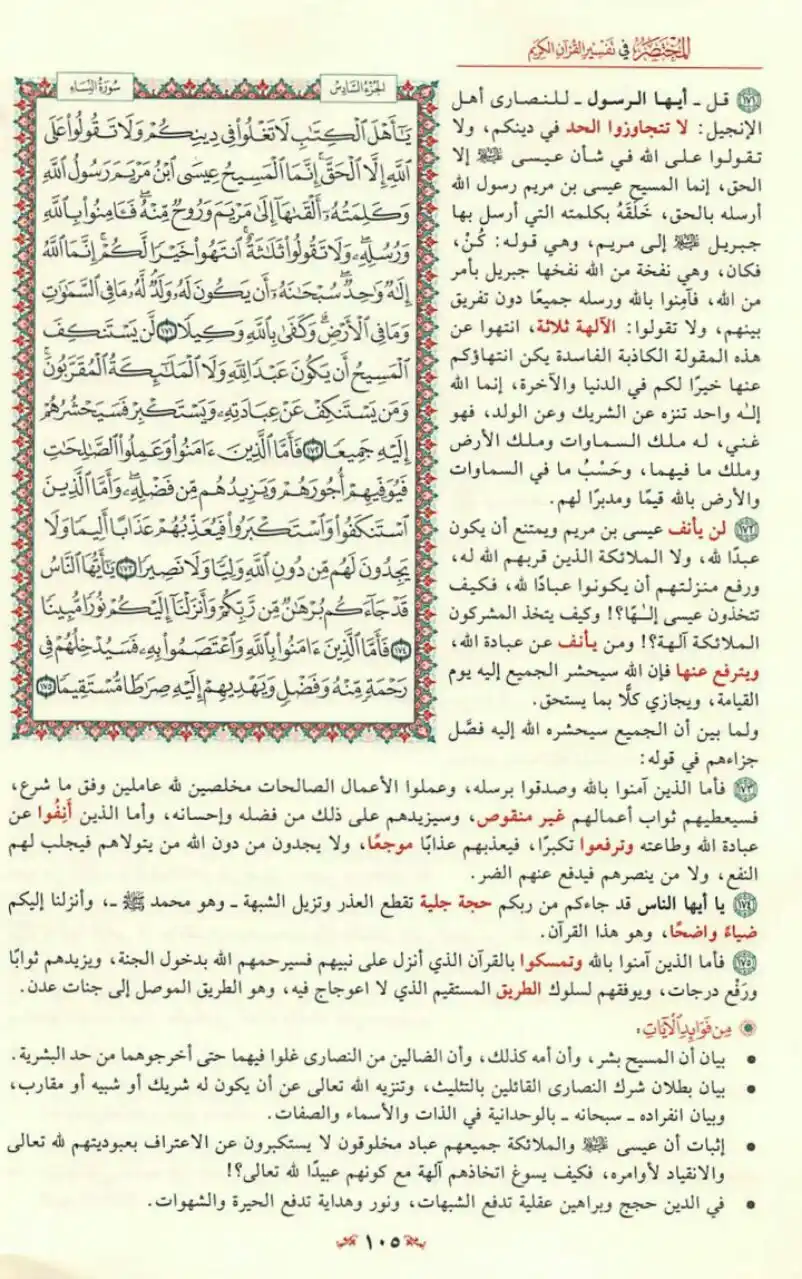 المختصر في تفسير القرآن الكريم
الجزء السادس
سورة النساء
يَٰٓأَهۡلَ ٱلۡكِتَٰبِ لَا تَغۡلُواْ فِي دِينِكُمۡ وَلَا تَقُولُواْ عَلَى
ٱللَّهِ إِلَّا ٱلۡحَقَّۚ إِنَّمَا ٱلۡمَسِيحُ عِيسَى ٱبۡنُ مَرۡيَمَ رَسُولُ ٱللَّهِ
وَكَلِمَتُهُۥٓ أَلۡقَىٰهَآ إِلَىٰ مَرۡيَمَ وَرُوحٞ مِّنۡهُۖ فَـَٔامِنُواْ بِٱللَّهِ
وَرُسُلِهِۦۖ وَلَا تَقُولُواْ ثَلَٰثَةٌۚ ٱنتَهُواْ خَيۡرٗا لَّكُمۡۚ إِنَّمَا ٱللَّهُ
إِلَٰهٞ وَٰحِدٞۖ سُبۡحَٰنَهُۥٓ أَن يَكُونَ لَهُۥ وَلَدٞۘ لَّهُۥ مَا فِي ٱلسَّمَٰوَٰتِ
وَمَا فِي ٱلۡأَرۡضِۗ وَكَفَىٰ بِٱللَّهِ وَكِيلٗا ١٧١ لَّن يَسۡتَنكِفَ
ٱلۡمَسِيحُ أَن يَكُونَ عَبۡدٗا لِّلَّهِ وَلَا ٱلۡمَلَٰٓئِكَةُ ٱلۡمُقَرَّبُونَۚ
وَمَن يَسۡتَنكِفۡ عَنۡ عِبَادَتِهِۦ وَيَسۡتَكۡبِرۡ فَسَيَحۡشُرُهُمۡ
إِلَيۡهِ جَمِيعٗا ١٧٢ فَأَمَّا ٱلَّذِينَ ءَامَنُواْ وَعَمِلُواْ ٱلصَّٰلِحَٰتِ
فَيُوَفِّيهِمۡ أُجُورَهُمۡ وَيَزِيدُهُم مِّن فَضۡلِهِۦۖ وَأَمَّا ٱلَّذِينَ
ٱسۡتَنكَفُواْ وَٱسۡتَكۡبَرُواْ فَيُعَذِّبُهُمۡ عَذَابًا أَلِيمٗا وَلَا
يَجِدُونَ لَهُم مِّن دُونِ ٱللَّهِ وَلِيّٗا وَلَا نَصِيرٗا ١٧٣ يَٰٓأَيُّهَا ٱلنَّاسُ
قَدۡ جَآءَكُم بُرۡهَٰنٞ مِّن رَّبِّكُمۡ وَأَنزَلۡنَآ إِلَيۡكُمۡ نُورٗا مُّبِينٗا
١٧٤ فَأَمَّا ٱلَّذِينَ ءَامَنُواْ بِٱللَّهِ وَٱعۡتَصَمُواْ بِهِۦ فَسَيُدۡخِلُهُمۡ فِي
رَحۡمَةٖ مِّنۡهُ وَفَضۡلٖ وَيَهۡدِيهِمۡ إِلَيۡهِ صِرَٰطٗا مُّسۡتَقِيمٗا ١٧٥
١٧١ قل ـ أيها الرسول ـ للنصارى أهل
الإنجيل: لا تتجاوزوا الحد في دينكم، ولا
تقولوا على الله في شأن عيسى ﷺ إلا
الحق، إنما المسيح عيسى بن مريم رسول الله
أرسله بالحق، خَلَقَهُ بكلمته التي أرسل بها
جبريل ﷺ إلى مريم، وهي قوله: كُنْ،
فكان، وهي نفخة من الله نفخها جبريل بأمر
من الله، فآمِنوا بالله ورسله جميعًا دون تفريق
بينهم، ولا تقولوا: الآلهة ثلاثة، انتهوا عن
هذه المقولة الكاذبة الفاسدة يكن انتهاؤكم
عنها خيرًا لكم في الدنيا والآخرة، إنما الله
إلٰه واحد تنزه عن الشريك وعن الولد، فهو
غني، له ملك السماوات وملك الأرض
وملك ما فيهما، وحَسْبُ ما في السماوات
والأرض بالله قيمًا ومدبرًا لهم.
١٧٢ لن يأنف عيسى بن مريم ويمتنع أن يكون
عبدًا لله، ولا الملائكة الذين قربهم الله له،
ورفع منزلتهم أن يكونوا عبادًا لله، فكيف
تتخذون عيسى إلٰهًا؟! وكيف يتخذ المشركون
الملائكة آلهة؟! ومن يأنف عن عبادة الله،
ويترفع عنها فإن الله سيحشر الجميع إليه يوم
القيامة، ويجازي كلًّا بما يستحق.
ولما بين أن الجميع سيحشره الله إليه فصَّل
جزاءهم في قوله:
١٧٣ فأما الذين آمنوا بالله وصدقوا برسله، وعملوا الأعمال الصالحات مخلصين لله عاملين وفق ما شرع،
فسيعطيهم ثواب أعمالهم غير منقوص، وسيزيدهم على ذلك من فضله وإحسانه، وأما الذين أَنِفُوا عن
عبادة الله وطاعته وترفعوا تكبرًا، فيعذبهم عذابًا موجعًا، ولا يجدون من دون الله من يتولاهم فيجلب لهم
النفع، ولا من ينصرهم فيدفع عنهم الضر.
١٧٤ يا أيها الناس قد جاءكم من ربكم حجة جلية تقطع العذر وتزيل الشبهة ـ وهو محمد ﷺ ـ، وأنزلنا إليكم
ضياءً واضحًا، وهو هذا القرآن.
١٧٥ فأما الذين آمنوا بالله وتمسكوا بالقرآن الذي أنزل على نبيهم فسيرحمهم الله بدخول الجنة، ويزيدهم ثوابًا
ورَفْع درجات، ويوفقهم لسلوك الطريق المستقيم الذي لا اعوجاج فيه، وهو الطريق الموصل إلى جنات عدن.
من فوائد الآيات:
• بيان أن المسيح بشر، وأن أمه كذلك، وأن الضالين من النصارى غلوا فيهما حتى أخرجوهما من حد البشرية.
• بيان بطلان شرك النصارى القائلين بالتثليث، وتنزيه الله تعالى عن أن يكون له شريك أو شبيه أو مقارب،
وبيان انفراده ـ سبحانه ـ بالوحدانية في الذات والأسماء والصفات.
• إثبات أن عيسى ﷺ والملائكة جميعهم عباد مخلوقون لا يستكبرون عن الاعتراف بعبوديتهم لله تعالى
والانقياد لأوامره، فكيف يسوغ اتخاذهم آلهة مع كونهم عبيدًا لله تعالى؟!
• في الدين حجج وبراهين عقلية تدفع الشبهات، ونور وهداية تدفع الحيرة والشهوات.
١٠٥